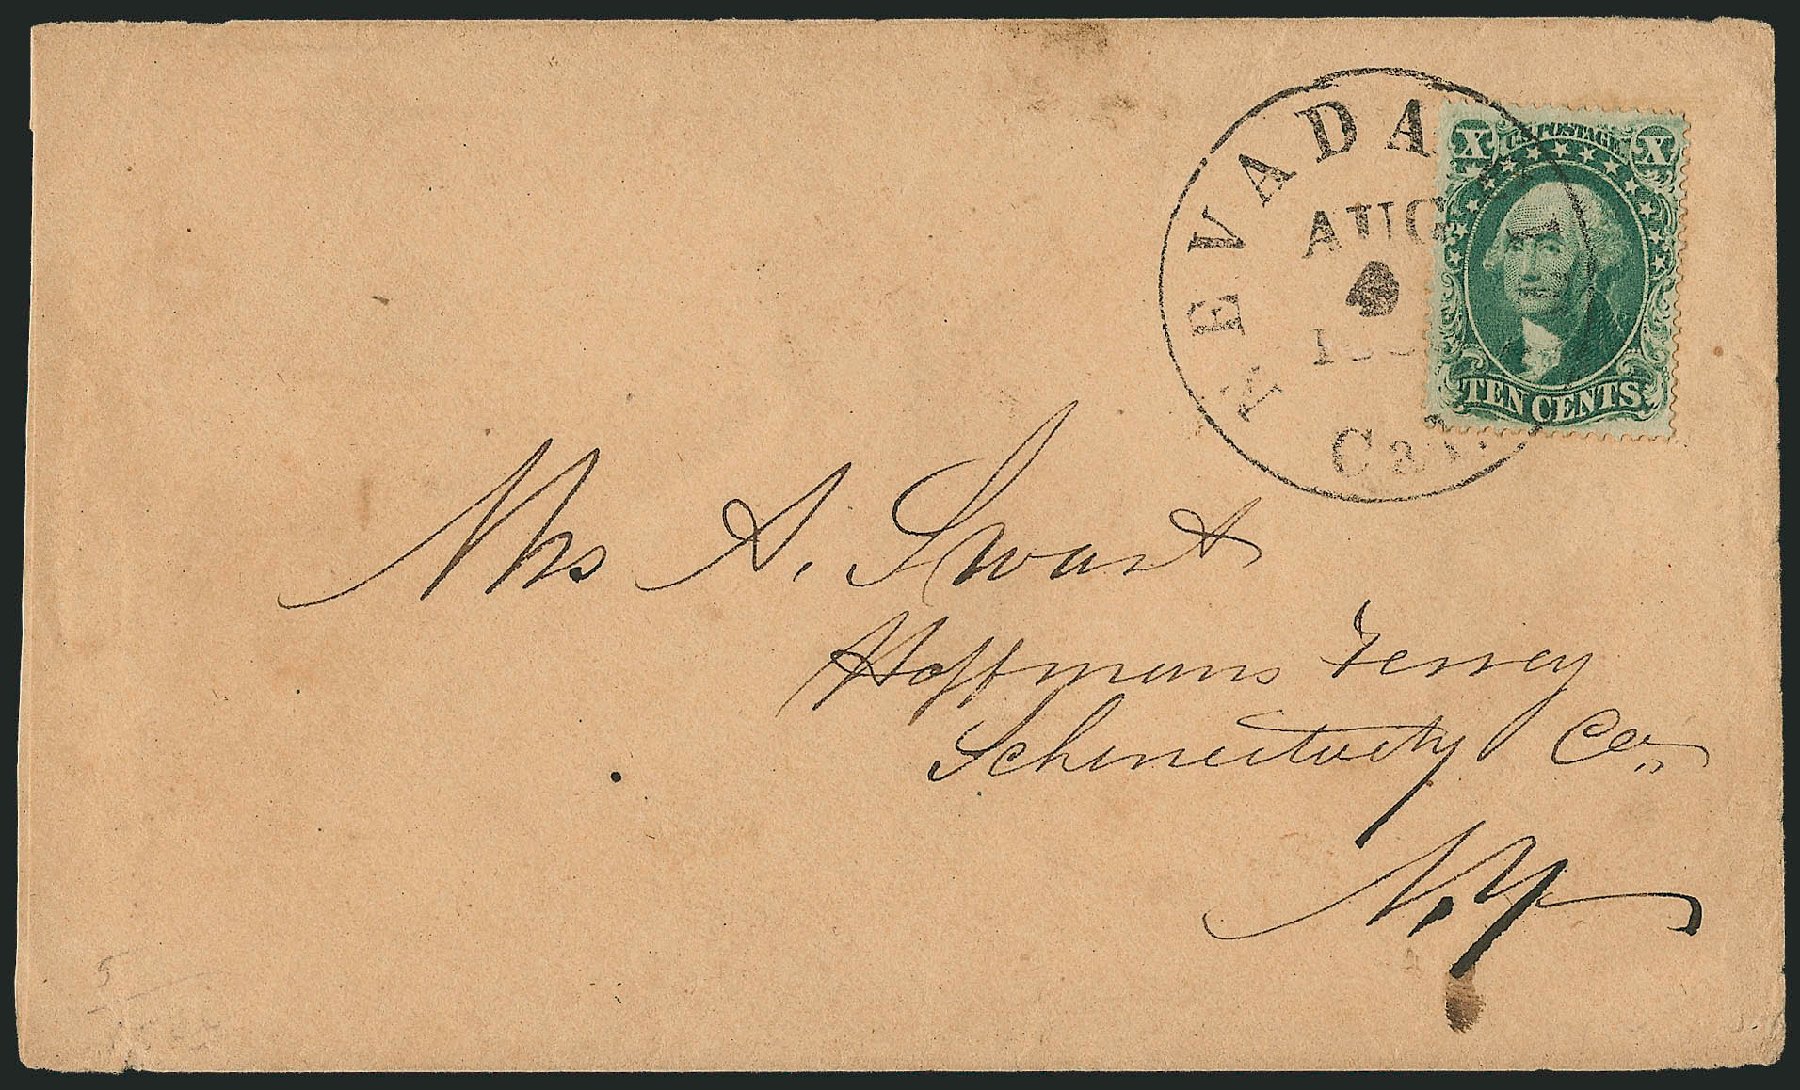 NEVADA
AUG
Cal.
X U.S. POSTAGE X
TEN CENTS
Mrs A. Swart
Hoffmans Ferrey
Schenectady Co.
N.Y
5